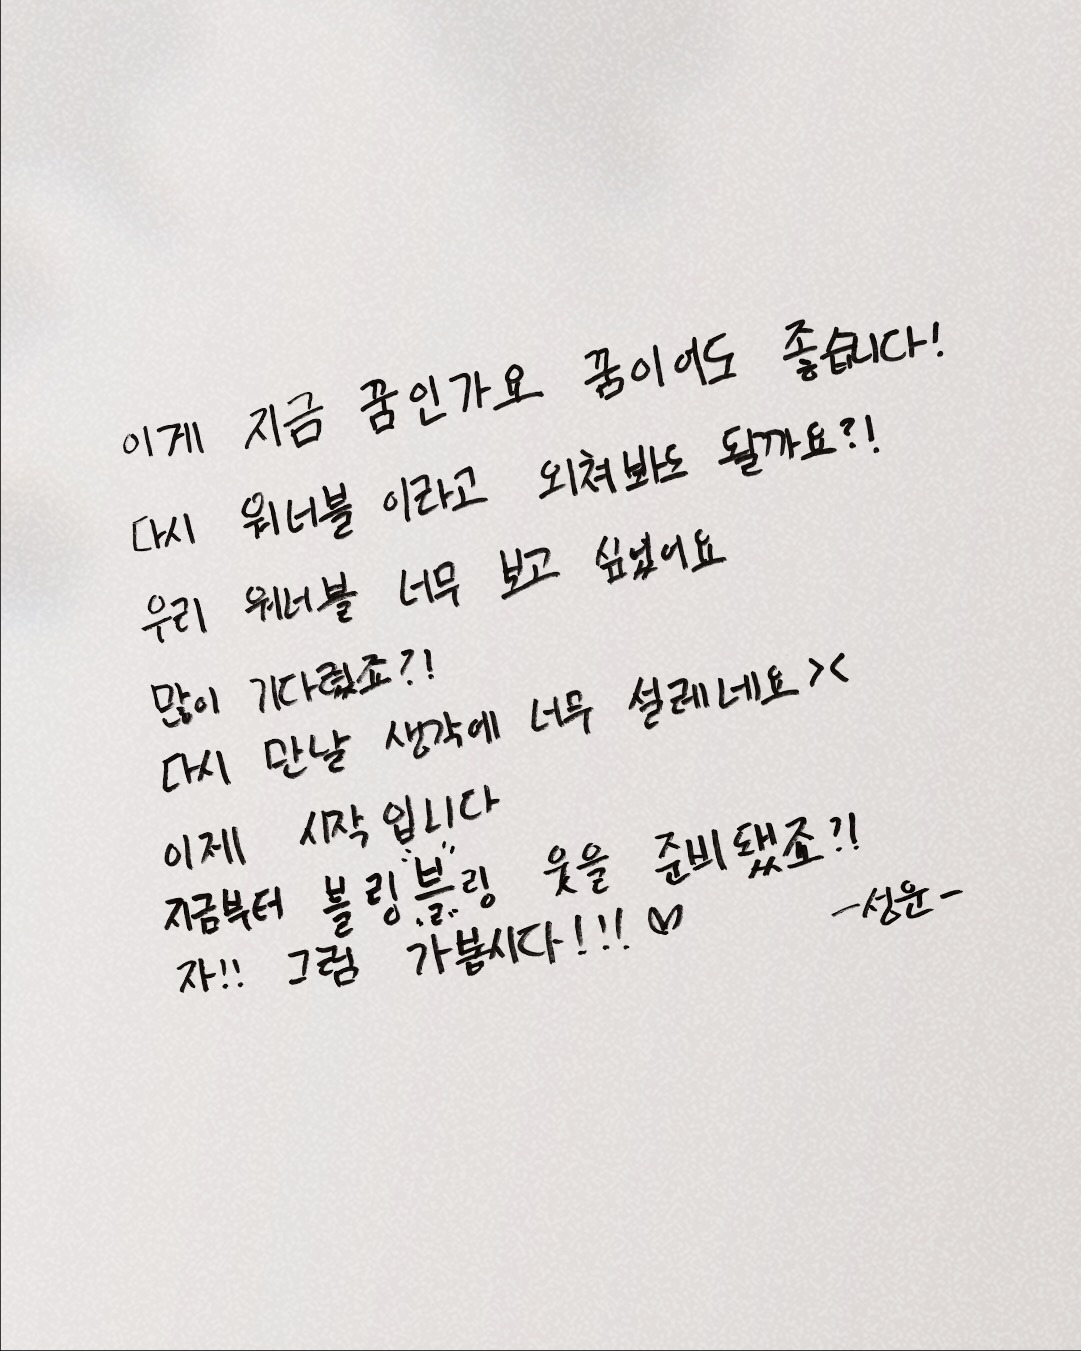 이게 지금 꿈인가요 꿈이어도 좋습니다!
다시 워너블 이라고 외쳐봐도 될까요?!
우리 워너블 너무 보고 싶었어요
많이 기다렸죠?!
다시 만날 생각에 너무 설레네요><
이제 시작입니다
지금부터 블링블링 웃을 준비됐죠?!
자!! 그럼 가봅시다!!! ♡
-성운-